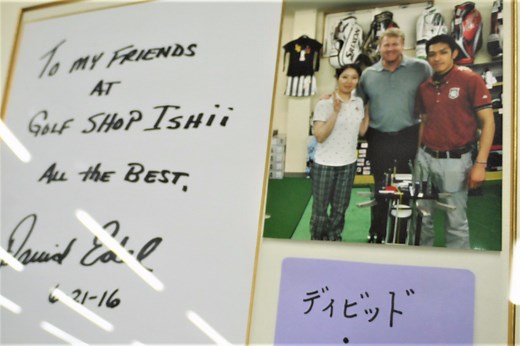 To MY FRIENDS
AT
GOLF SHOP ISHii
ALL the BEST.
David Edel
6-21-16
SRIXON
ディビッド
・